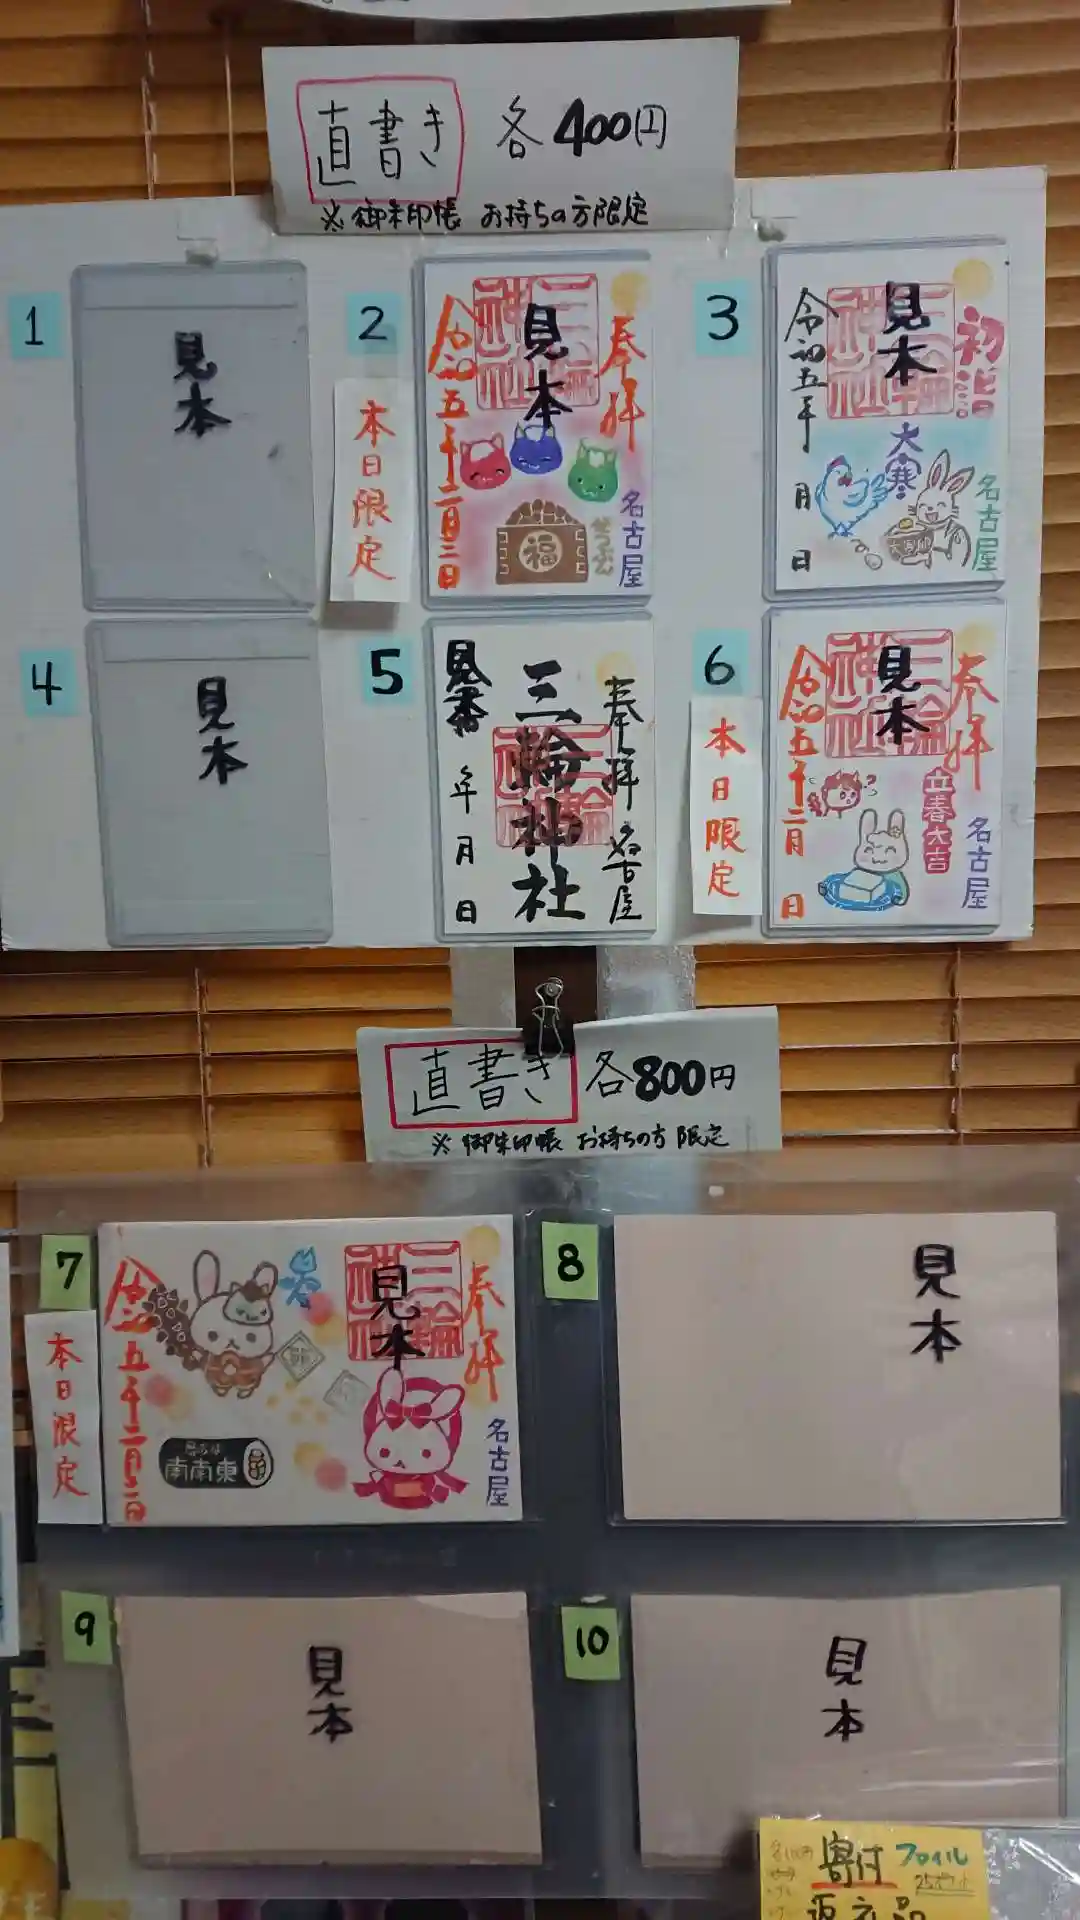 直書き 各400円
※御朱印帳 お持ちの方限定
1
見本
2
本日限定
奉拝
見本
令和五年二月三日
福
名古屋
3
初詣
見本
令和五年
月
日
大寒
名古屋
4
見本
5
奉拝 名古屋
三輪神社
見本
年
月
日
6
本日限定
奉拝
見本
令和五年二月
日
立春大吉
名古屋
直書き 各800円
※御朱印帳 お持ちの方限定
7
本日限定
奉拝
見本
名古屋
南南東
令和五年二月三日
8
見本
9
見本
10
見本
寄付 ファイル
返礼品